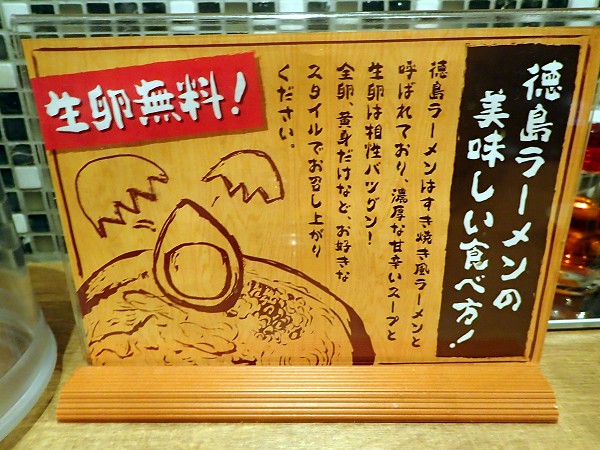 徳島ラーメンの
美味しい食べ方！
徳島ラーメンはすき焼き風ラーメンと
呼ばれており、濃厚な甘辛いスープと
生卵は相性バツグン！
全卵、黄身だけなど、お好きな
スタイルでお召し上がり
ください。
生卵無料！